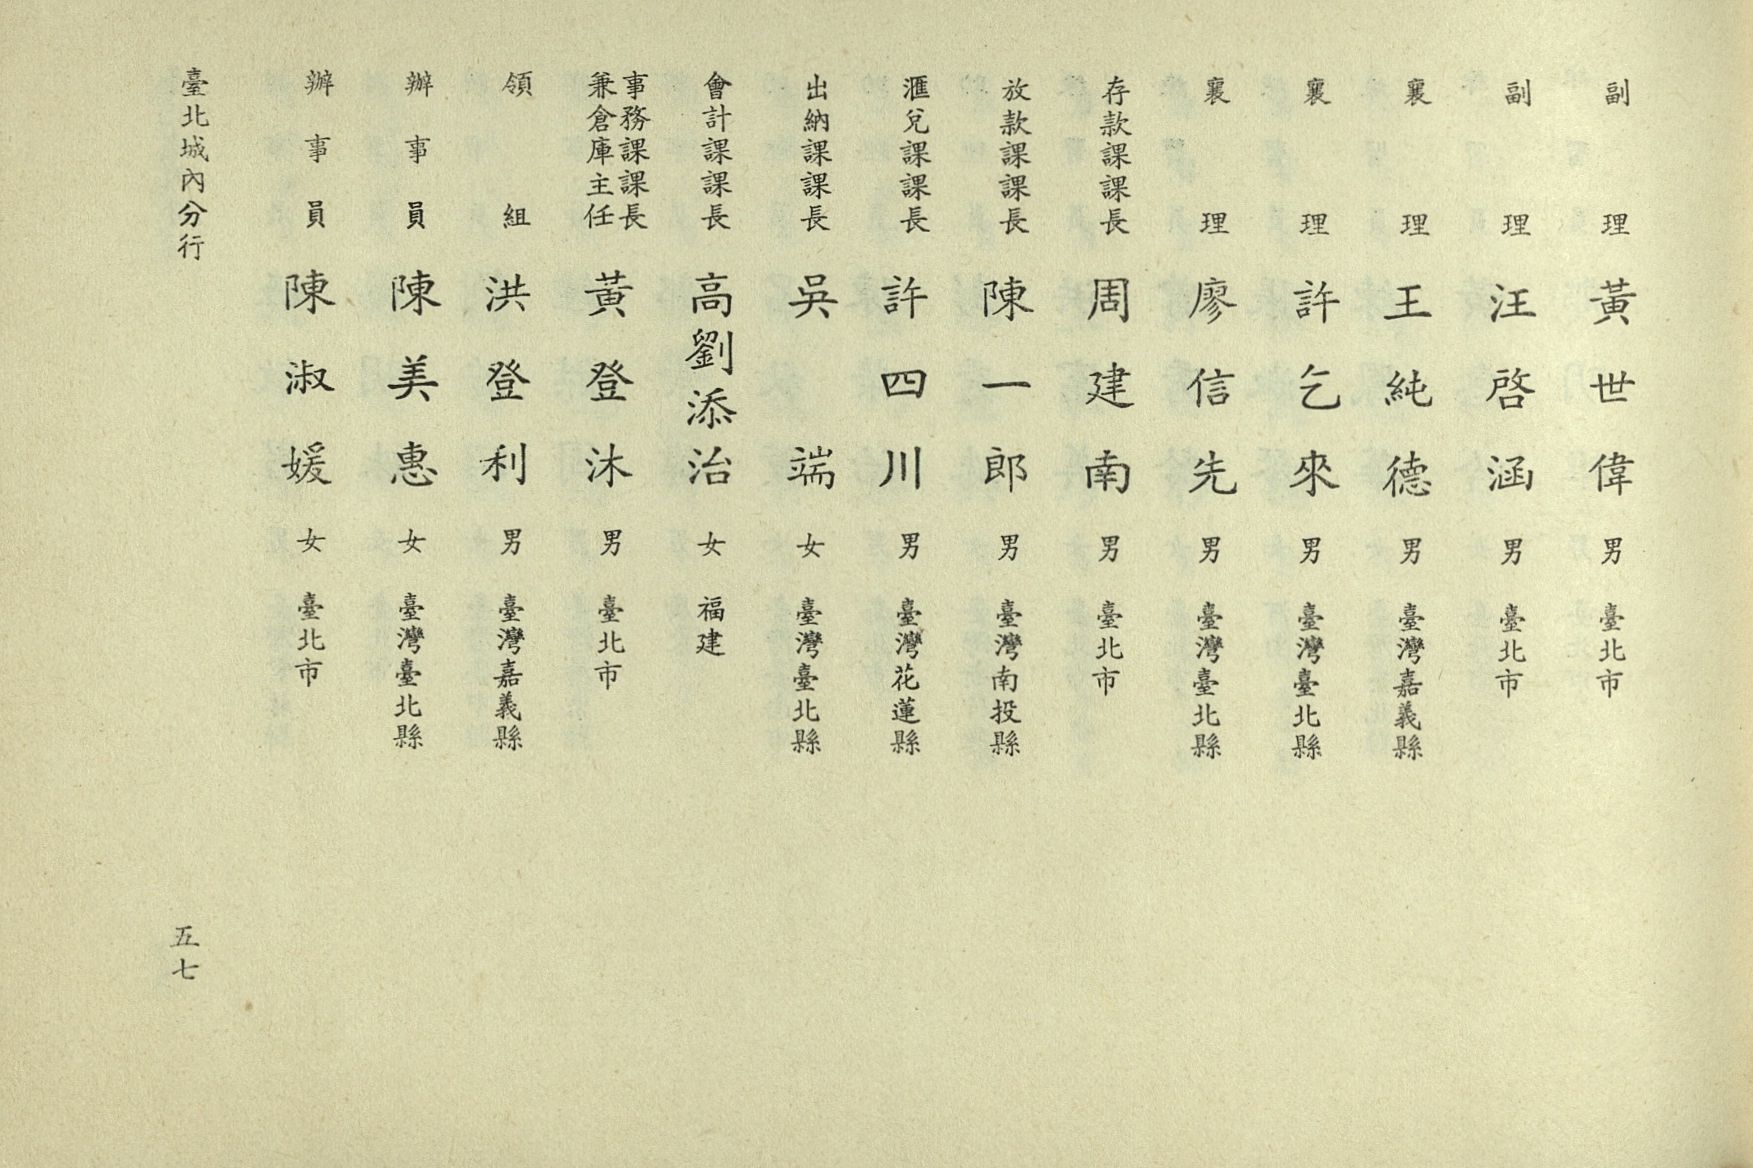 副理 黃世偉 男 臺北市
副理 汪啓涵 男 臺北市
襄理 王純德 男 臺灣嘉義縣
襄理 許乞來 男 臺灣臺北縣
襄理 廖信先 男 臺灣臺北縣
存款課課長 周建南 男 臺北市
放款課課長 陳一郎 男 臺灣南投縣
滙兌課課長 許四川 男 臺灣花蓮縣
出納課課長 吳端 女 臺灣臺北縣
會計課課長 高劉添治 女 福建
事務課課長
兼倉庫主任 黃登沐 男 臺北市
領組 洪登利 男 臺灣嘉義縣
辦事員 陳美惠 女 臺灣臺北縣
辦事員 陳淑媛 女 臺北市
臺北城內分行
五七